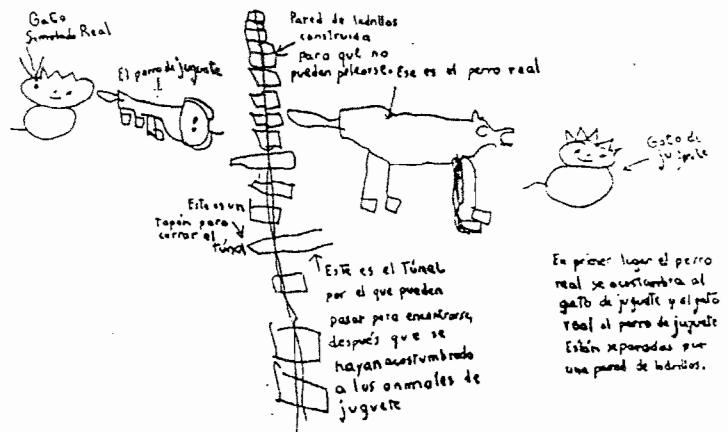 Gato
Simulado Real
El perro de juguete
Pared de ladrillos
construida
para que no
puedan pelearse.
Ese es el perro real
Gato de
juguete
Este es un
Tapón para
cerrar el
túnel
Este es el Túnel
por el que pueden
pasar para encontrarse,
después que se
hayan acostumbrado
a los animales de
juguete
En primer lugar el perro
real se acostumbra al
gato de juguete y el gato
real al perro de juguete
Están separados por
una pared de ladrillos.